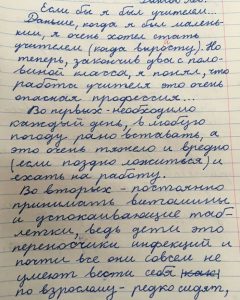 Если бы я был учителем...
Раньше, когда я был малень-
ким, я очень хотел стать
учителем (когда вырасту). Но
теперь, закончив два с поло-
виной класса, я понял, что
работа учителя это очень
опасная профессия...
Во первых - необходимо
каждый день, в любую
погоду рано вставать, а
это очень тяжело и вредно
(если поздно ложиться) и
ехать на работу.
Во вторых - постоянно
принимать витамины
и успокаивающие таб-
летки, ведь дети это
переносчики инфекций и
почти все они совсем не
умеют вести себя
по взрослому - редко сидят,